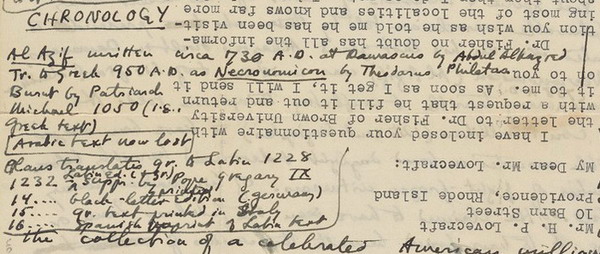 CHRONOLOGY
Al Azif written circa 730 A.D. at Damascus by Abdul Alhazred
Tr. to Greek 950 A.D. as Necronomicon by Theodorus Philetas
Burnt by Patriarch
Michael 1050 (i.e.,
Greek text)
Arabic text now lost
Olaus translates Gr. to Latin 1228
1232 Latin ed. (& Gr.) suppr. by Pope Gregory IX
14.... black-letter edition (Germany)
15.... Gr. text printed in Italy
16.... Spanish reprint of Latin text
the collection of a celebrated American
Mr. H. P. Lovecraft
10 Barn Street
Providence, Rhode Island
My Dear Mr. Lovecraft:
I have inclosed your questionnaire with
the letter to Dr. Fisher of Brown University
with a request that he fill it out and return
it to me. As soon as I get it, I will send it
on to you.
Dr. Fisher no doubt has all the informa-
tion you wish as he told me he has been visit-
ing most of the localities and knows far more